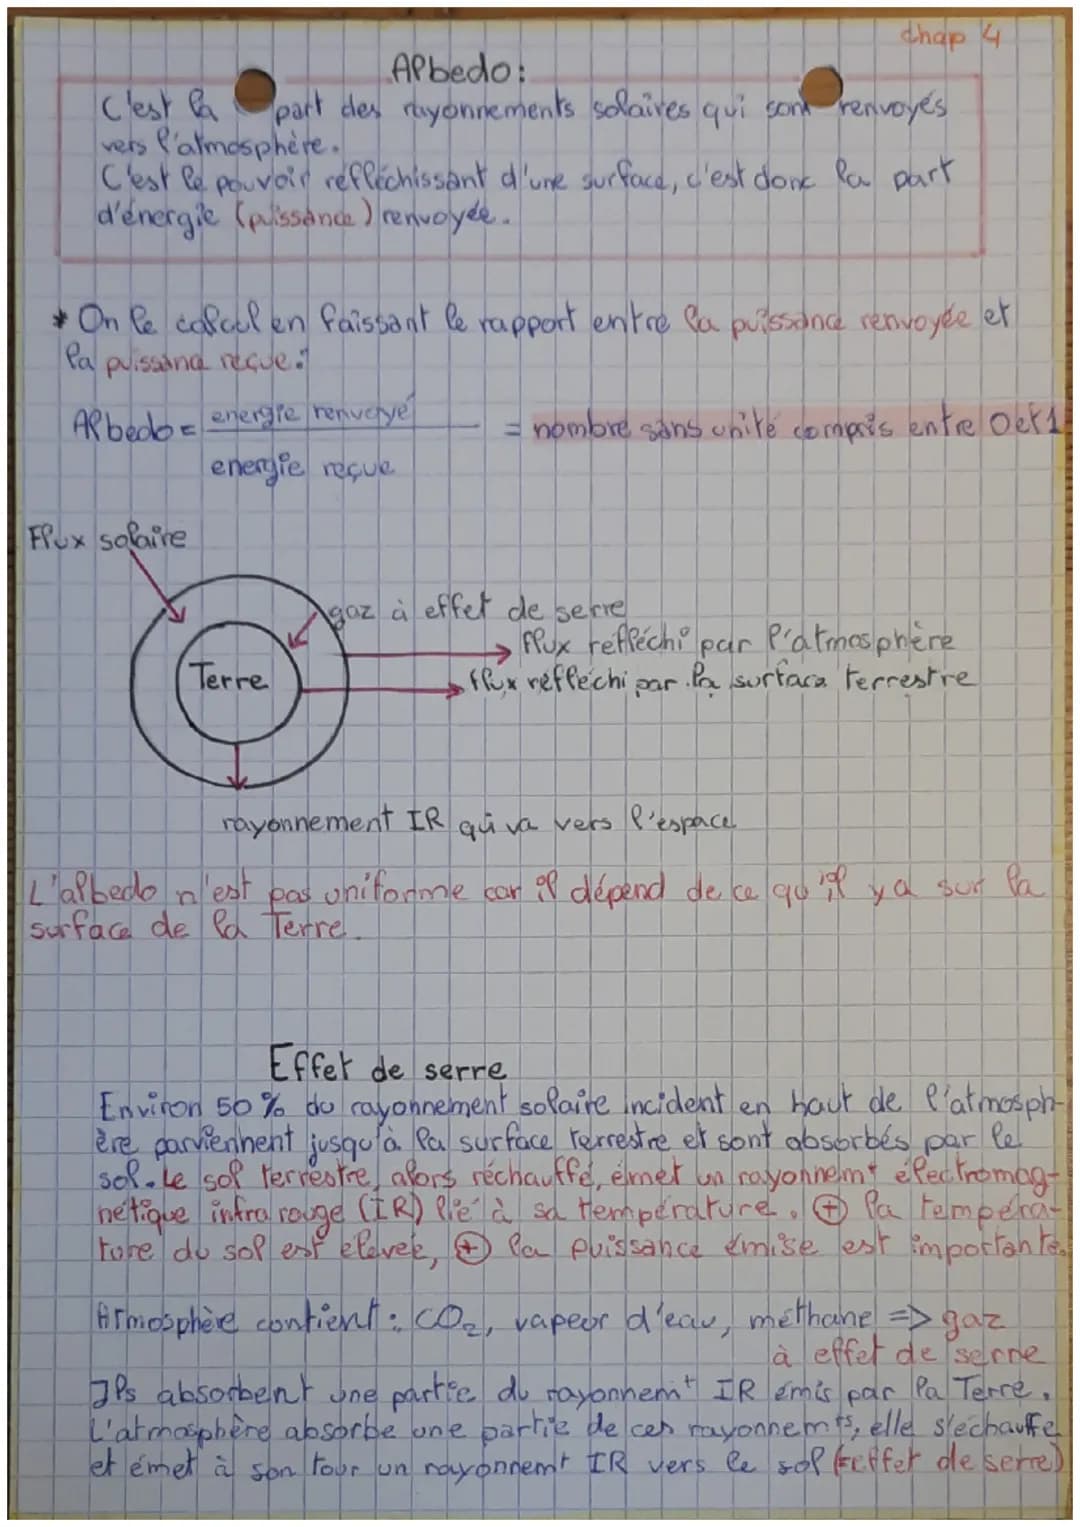 chap 4
Albedo:
C'est la part des rayonnements solaires qui sont renvoyés
vers l'atmosphère.
C'est le pouvoir réfléchissant d'une surface, c'est donc la part
d'énergie (puissance) renvoyée.
* On le calcul en faissant le rapport entre la puissance renvoyée et
la puissance reçue:
Albedo = energie renvoyé = nombre sans unité compris entre 0 et 1
energie reçue
Flux solaire
gaz à effet de serre
flux refléchi par l'atmosphère
Terre
flux réfléchi par la surface terrestre
rayonnement IR qui va vers l'espace
L'albedo n'est pas uniforme car il dépend de ce qu'il y a sur la
surface de la Terre.
Effet de serre
Environ 50 % du rayonnement solaire incident en haut de l'atmosph-
ère parviennent jusqu'à la surface terrestre et sont absorbés par le
sol. Le sol terrestre, alors réchauffé, émet un rayonnemt électromag-
nétique infra rouge (IR) lié à sa température. ⊕ la tempéra-
ture du sol est élevée, ⊕ la puissance émise est importante.
Atmosphère contient : CO2, vapeur d'eau, méthane => gaz
à effet de serre
Ils absorbent une partie du rayonnemt IR émis par la Terre.
L'atmosphère absorbe une partie de ces rayonnemts, elle s'échauffe
et émet à son tour un rayonnemt IR vers le sol (=effet de serre)